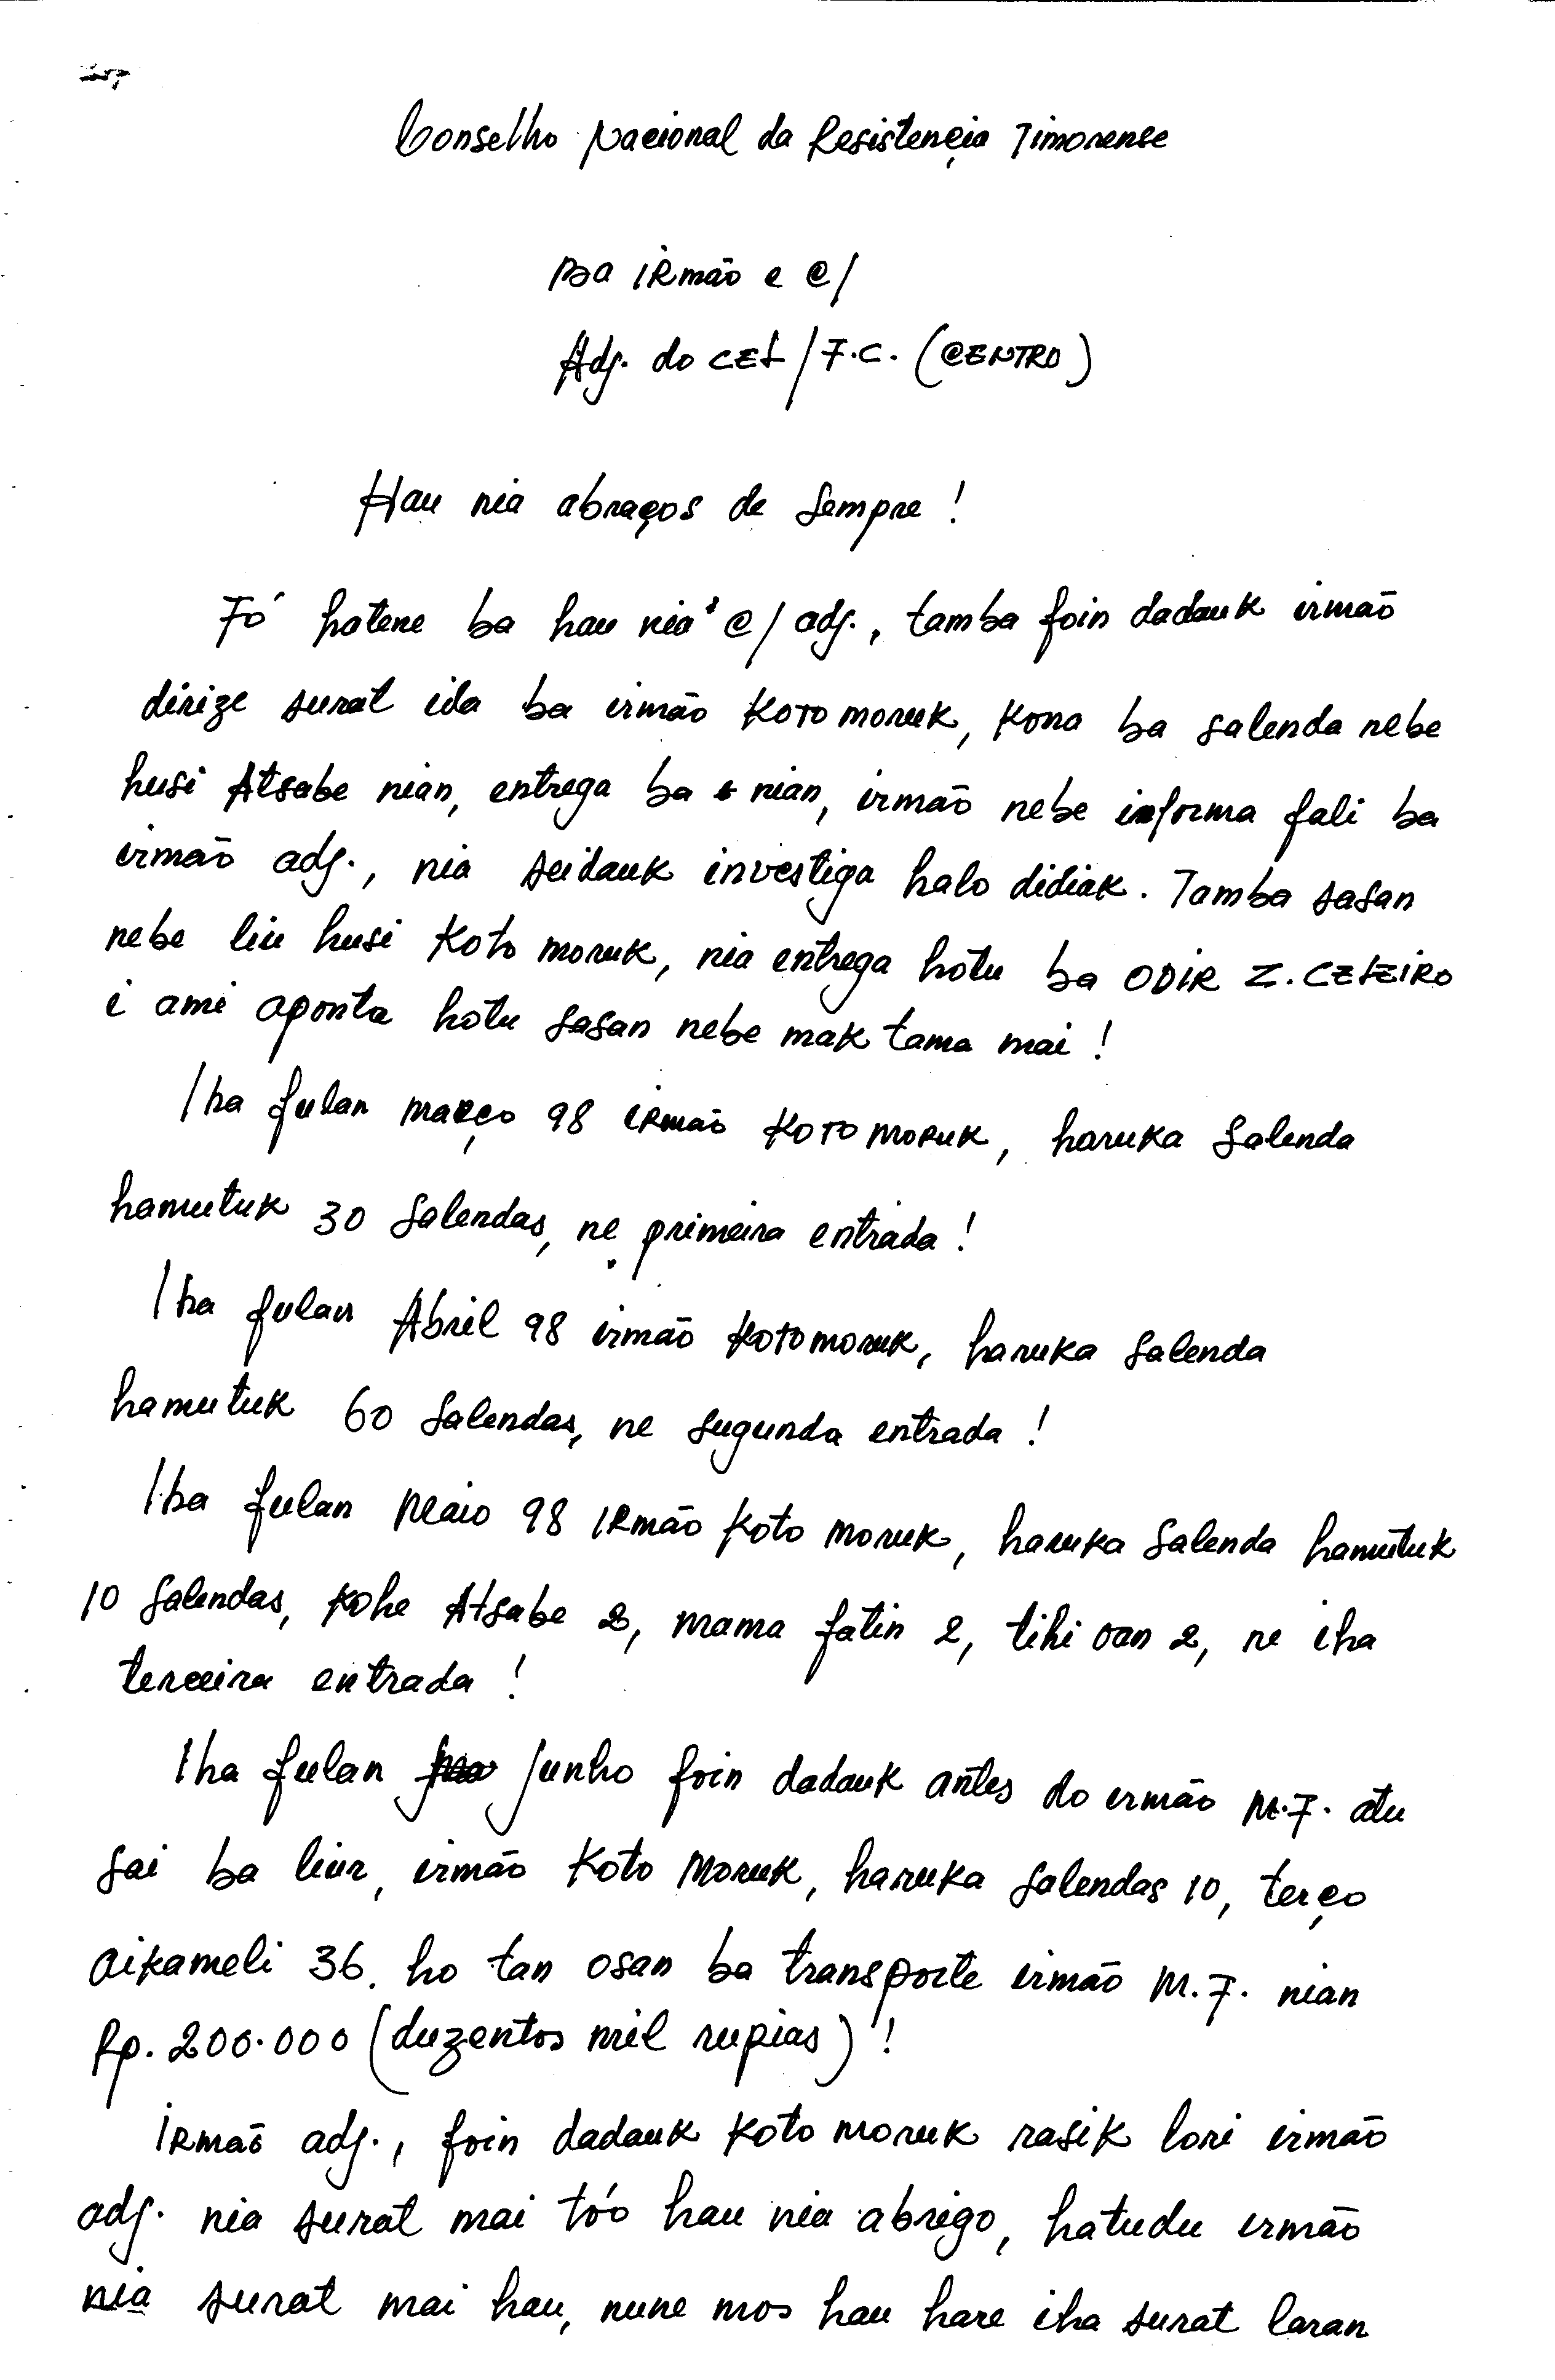 Conselho Nacional da Resistençia Timorense
Ba irmão e @/
Adj. do CEL/F.C. (CENTRO)
Hau nia abraços de sempre !
Fó hatene ba hau nia @/ adj., tamba foin dadauk irmão
dirize surat ida ba irmão Koto moruk, kona ba salenda nebe
husi Atsabe nian, entrega ba nian, irmão nebe informa fali ba
irmão adj., nia seidauk investiga halo didiak. Tamba sasan
nebe liu husi Koto moruk, nia entrega hotu ba ODIR Z. CELEIRO
i ami aponta hotu sasan nebe mak tama mai !
Iha fulan março 98 irmão Koto moruk, haruka salenda
hamutuk 30 salendas, ne primeira entrada !
Iha fulan Abril 98 irmão Koto moruk, haruka salenda
hamutuk 60 salendas, ne sugunda entrada !
Iha fulan Maio 98 irmão Koto moruk, haruka salenda hamutuk
10 salendas, kohe Atsabe 2, mama fatin 2, tihi oan 2, ne iha
terceira entrada !
Iha fulan Junho foin dadauk antes do irmão M.F. atu
sai ba liur, irmão Koto Moruk, haruka salendas 10, terço
aikameli 36. ho tan osan ba transporte irmão M.F. nian
Rp. 200.000 (duzentos mil rupias) !
Irmão adj., foin dadauk Koto moruk rasik lori irmão
adj. nia surat mai tóo hau nia abrigo, hatudu irmão
nia surat mai hau, nune mos hau hare iha surat laran